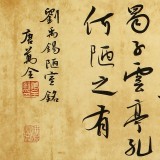 蜀子雲亭孔
何陋之有
劉禹錫陋室銘
唐萬全